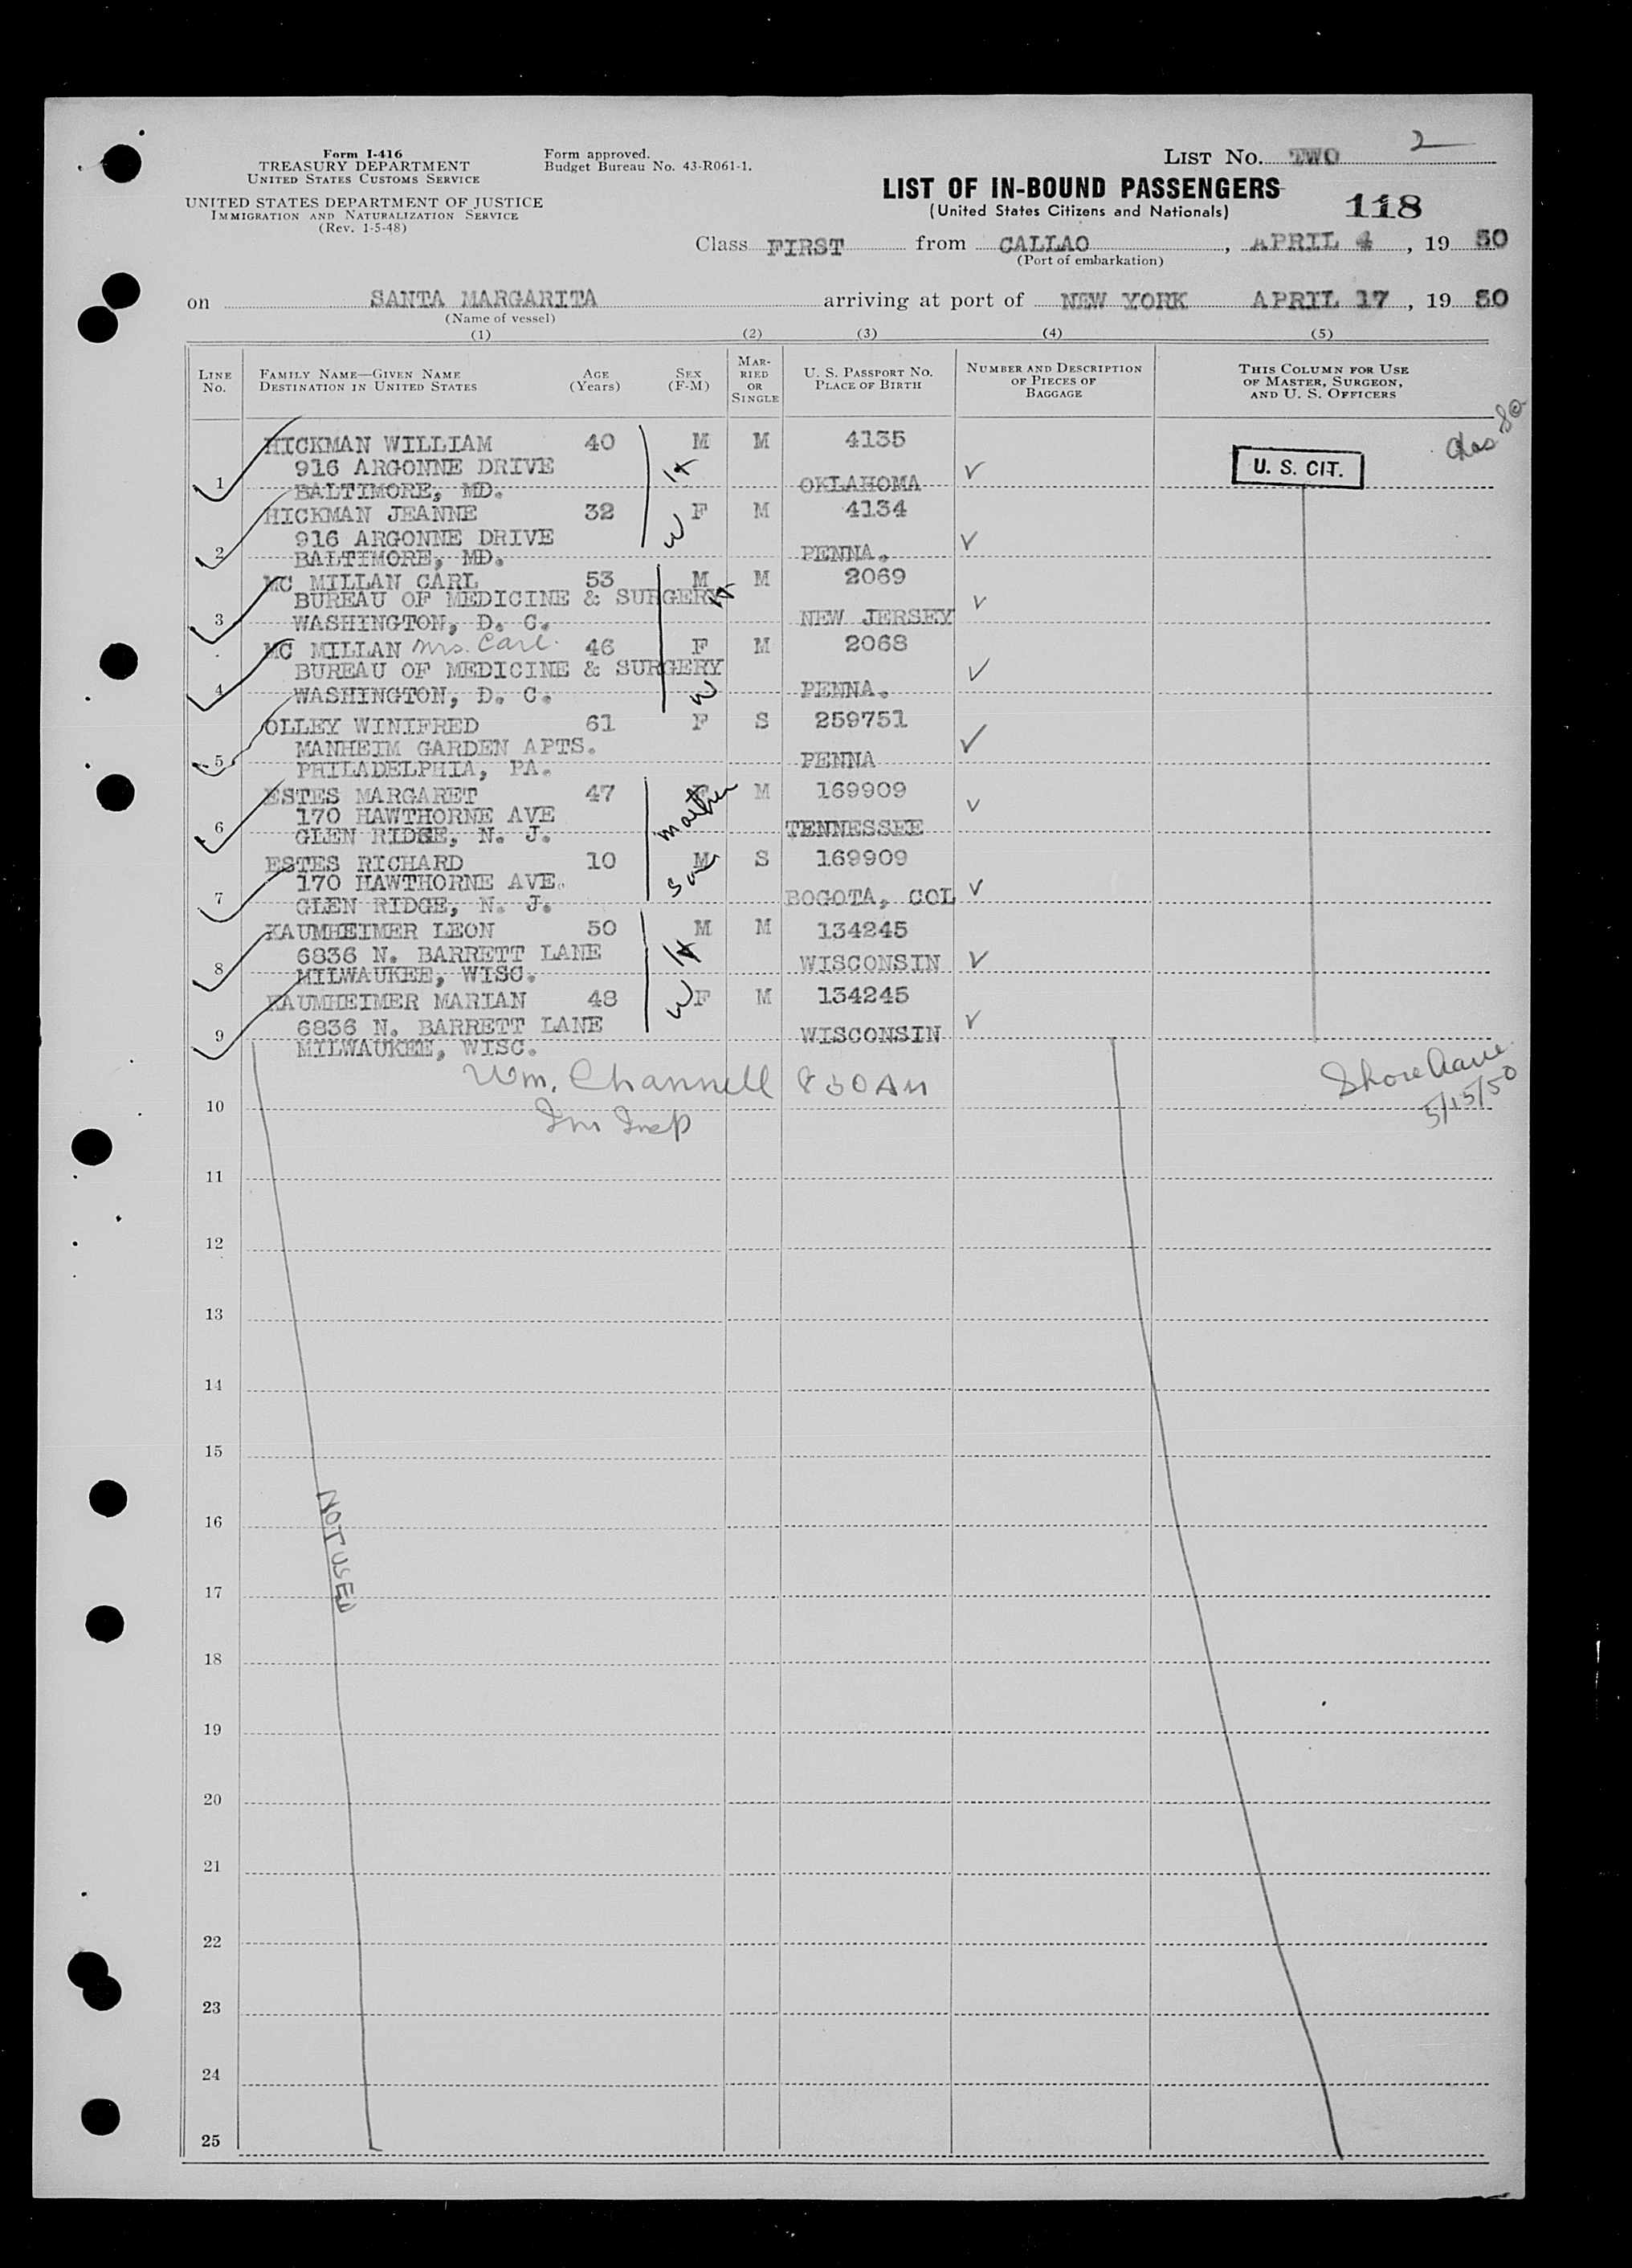 Form I-416
TREASURY DEPARTMENT
UNITED STATES CUSTOMS SERVICE
UNITED STATES DEPARTMENT OF JUSTICE
IMMIGRATION AND NATURALIZATION SERVICE
(Rev. 1-5-48)
Form approved.
Budget Bureau No. 43-R061-1.
LIST No. TWO 2
LIST OF IN-BOUND PASSENGERS
(United States Citizens and Nationals)
118
Class FIRST from CALLAO, APRIL 4, 19 50
(Port of embarkation)
on SANTA MARGARITA arriving at port of NEW YORK APRIL 17, 19 50
(Name of vessel)
(1) (2) (3) (4) (5)
LINE No.
FAMILY NAME—GIVEN NAME
DESTINATION IN UNITED STATES
AGE (Years)
SEX (F-M)
MARRIED OR SINGLE
U. S. PASSPORT NO.
PLACE OF BIRTH
NUMBER AND DESCRIPTION OF PIECES OF BAGGAGE
THIS COLUMN FOR USE OF MASTER, SURGEON, AND U. S. OFFICERS
HICKMAN WILLIAM 40 M M 4135
916 ARGONNE DRIVE H
1 BALTIMORE, MD. OKLAHOMA
U. S. CIT.
HICKMAN JEANNE 32 F M 4134
916 ARGONNE DRIVE W
2 BALTIMORE, MD. PENNA.
MC MILLAN CARL 53 M M 2069
BUREAU OF MEDICINE & SURGERY H
3 WASHINGTON, D. C. NEW JERSEY
MC MILLAN Mrs. Carl. 46 F M 2068
BUREAU OF MEDICINE & SURGERY
4 WASHINGTON, D. C. W PENNA.
OLLEY WINIFRED 61 F S 259751
MANHEIM GARDEN APTS.
5 PHILADELPHIA, PA. PENNA
ESTES MARGARET 47 F M 169909
170 HAWTHORNE AVE mother
6 GLEN RIDGE, N. J. TENNESSEE
ESTES RICHARD 10 M S 169909
170 HAWTHORNE AVE. son
7 GLEN RIDGE, N. J. BOGOTA, COL
KAUMHEIMER LEON 50 M M 134245
6836 N. BARRETT LANE H
8 MILWAUKEE, WISC. WISCONSIN
KAUMHEIMER MARIAN 48 F M 134245
6836 N. BARRETT LANE W
9 MILWAUKEE, WISC. WISCONSIN
Wm. Channell 830 AM
Im Insp
5/15/50
10
11
12
13
14
15
16
NOT USED
17
18
19
20
21
22
23
24
25